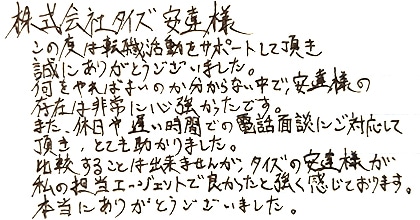 株式会社タイズ 安達様
この度は転職活動をサポートして頂き
誠にありがとうございました。
何をやればよいのか分からない中で、安達様の
存在は非常に心強かったです。
また、休日や遅い時間での電話面談にご対応して
頂き、とても助かりました。
比較することは出来ませんが、タイズの安達様が
私の担当エージェントで良かったと強く感じております。
本当にありがとうございました。